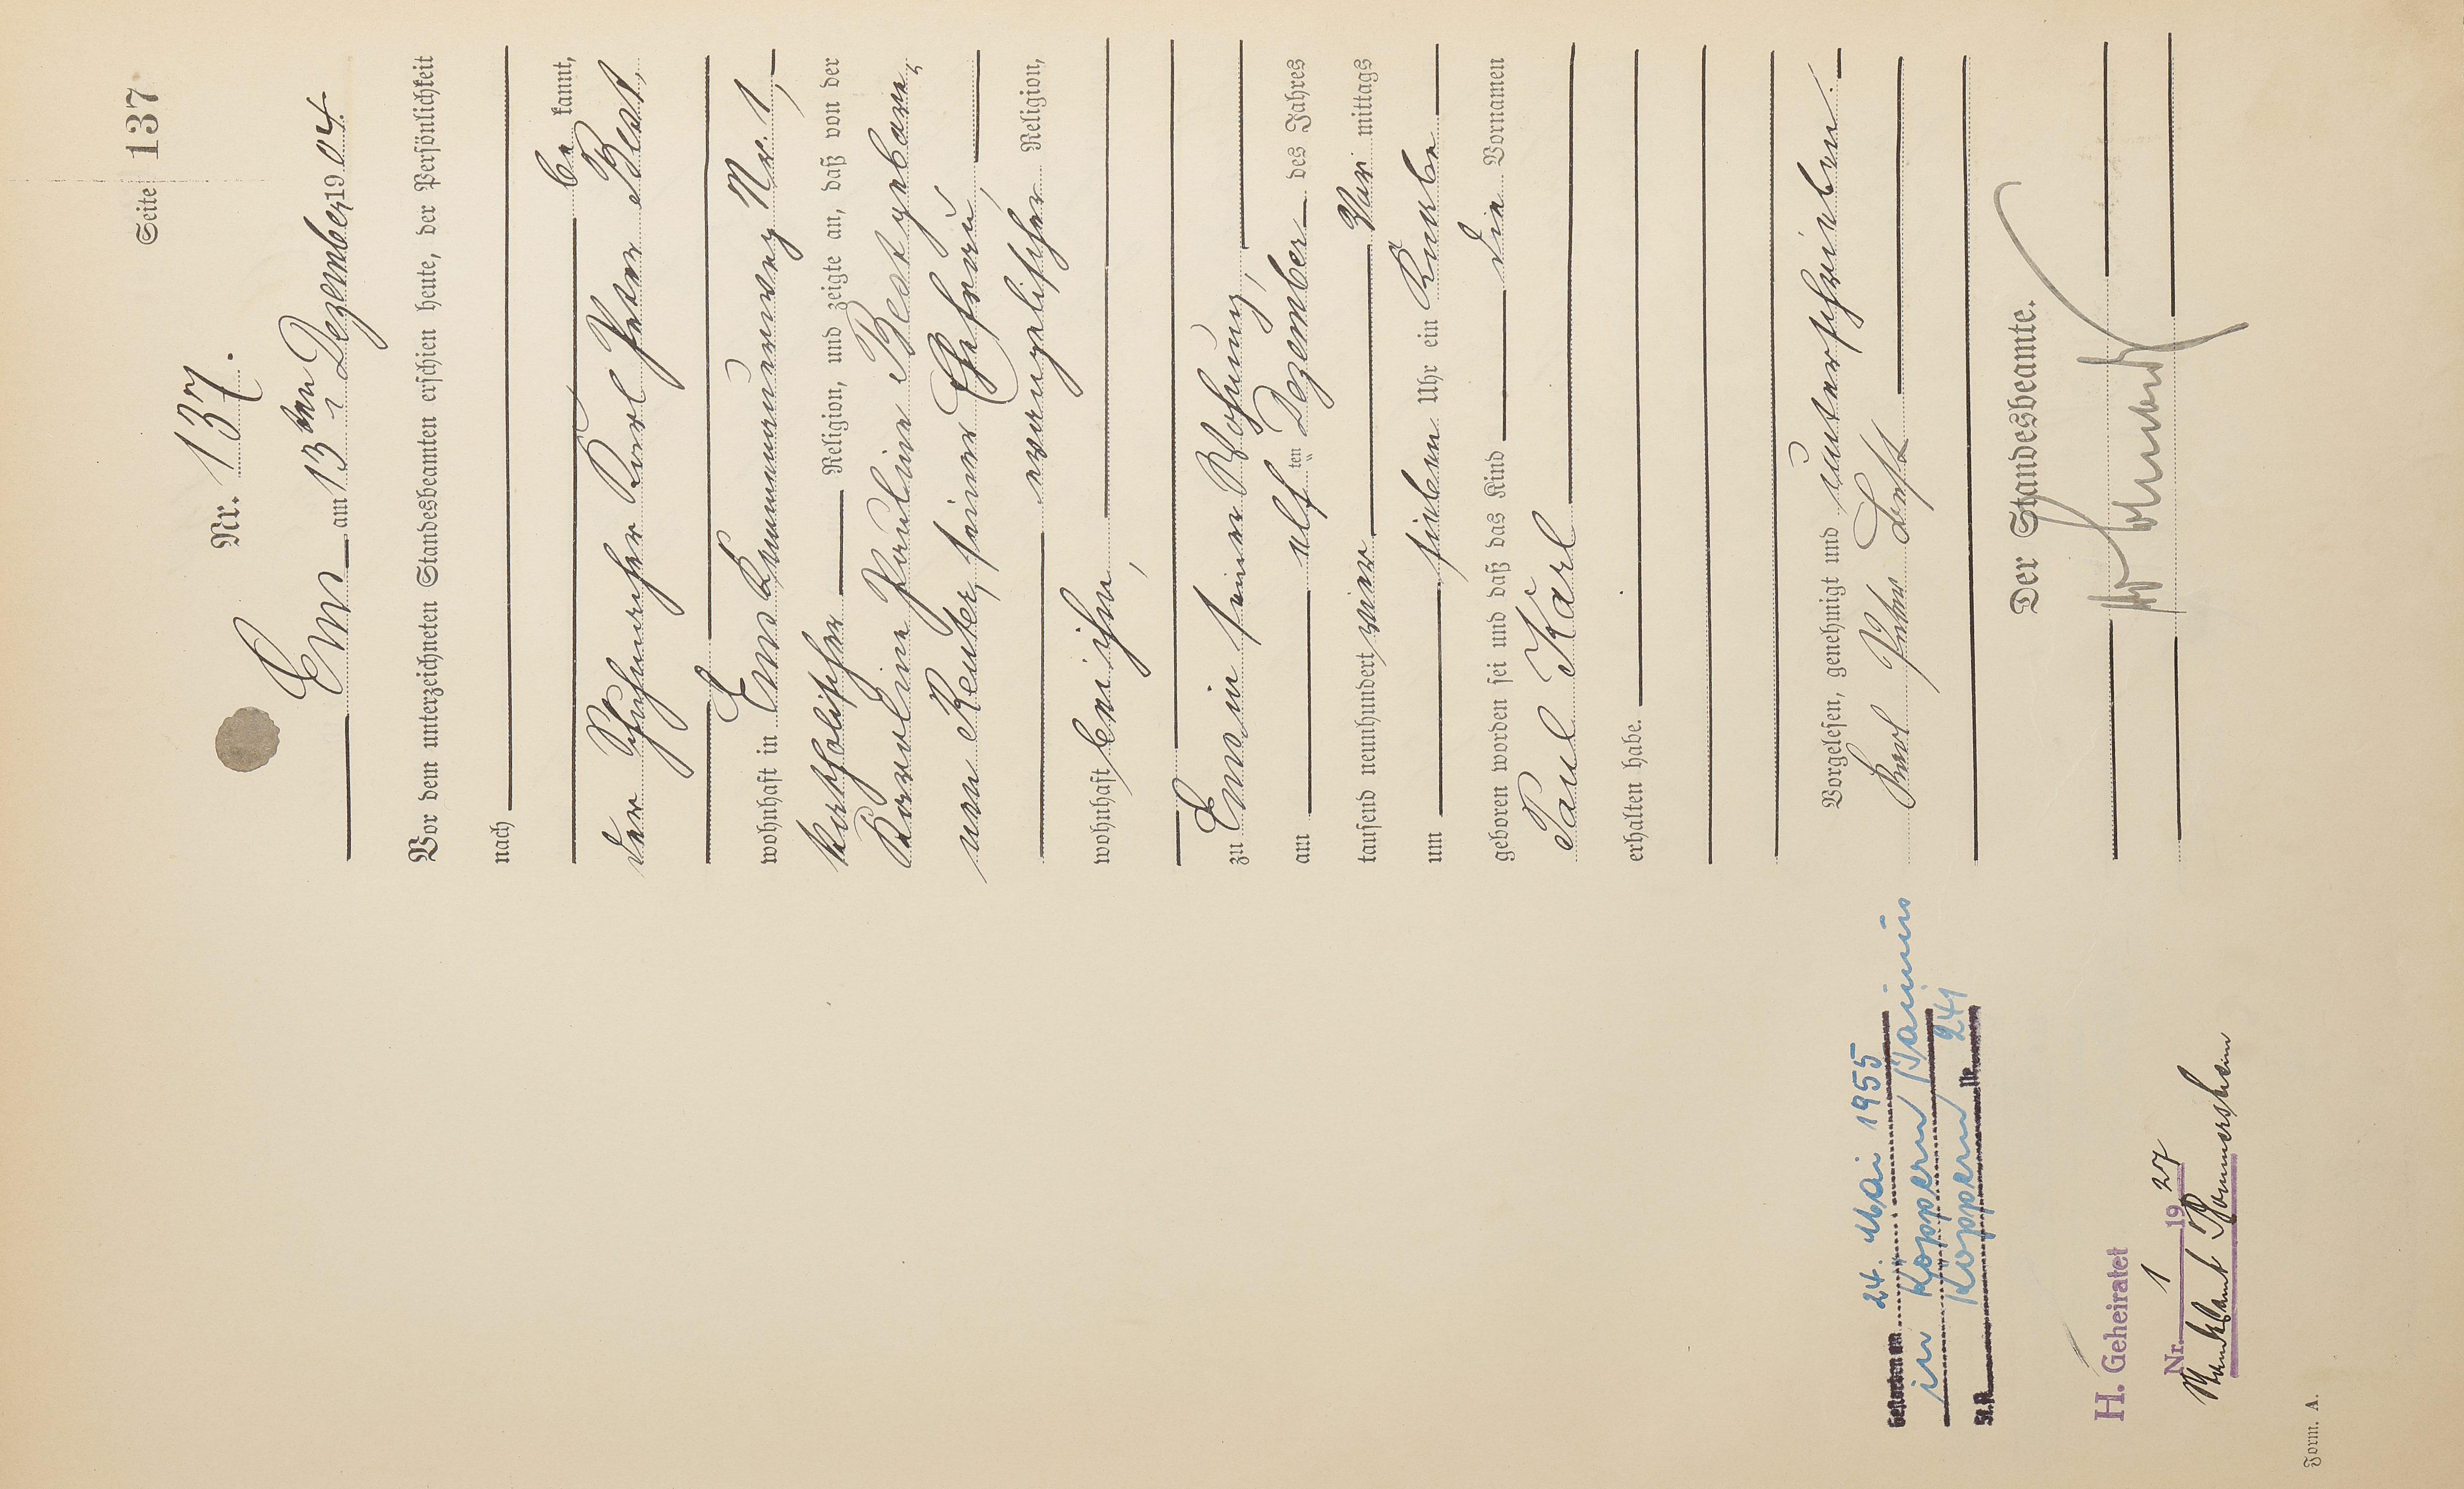 Seite 137
Nr. 137.
Ems am 13ten Dezember 1904.
Vor dem unterzeichneten Standesbeamten erschien heute, der Persönlichkeit
nach
be kannt,
der Schuhmacher Karl Peter Best,
wohnhaft in Ems Nr. 1,
katholischer Religion, und zeigte an, daß von der
Karoline Pauline Best geborene
von Reuter, seiner Ehefrau,
evangelischer Religion,
wohnhaft bei ihm,
zu Ems in seiner Wohnung,
am elf ten Dezember des Jahres
tausend neunhundert vier Vor mittags
um sieben Uhr ein Knabe
geboren worden sei und daß das Kind die Vornamen
Paul Karl
erhalten habe.
Vorgelesen, genehmigt und unterschrieben.
Karl Peter Best
Der Standesbeamte.
Gestorben am 24. Mai 1955
in Köppern/Taunus
St.A. Köppern Nr. 241
H. Geheiratet
Nr. 1 1927
Standesamt Bommersheim
Form. A.